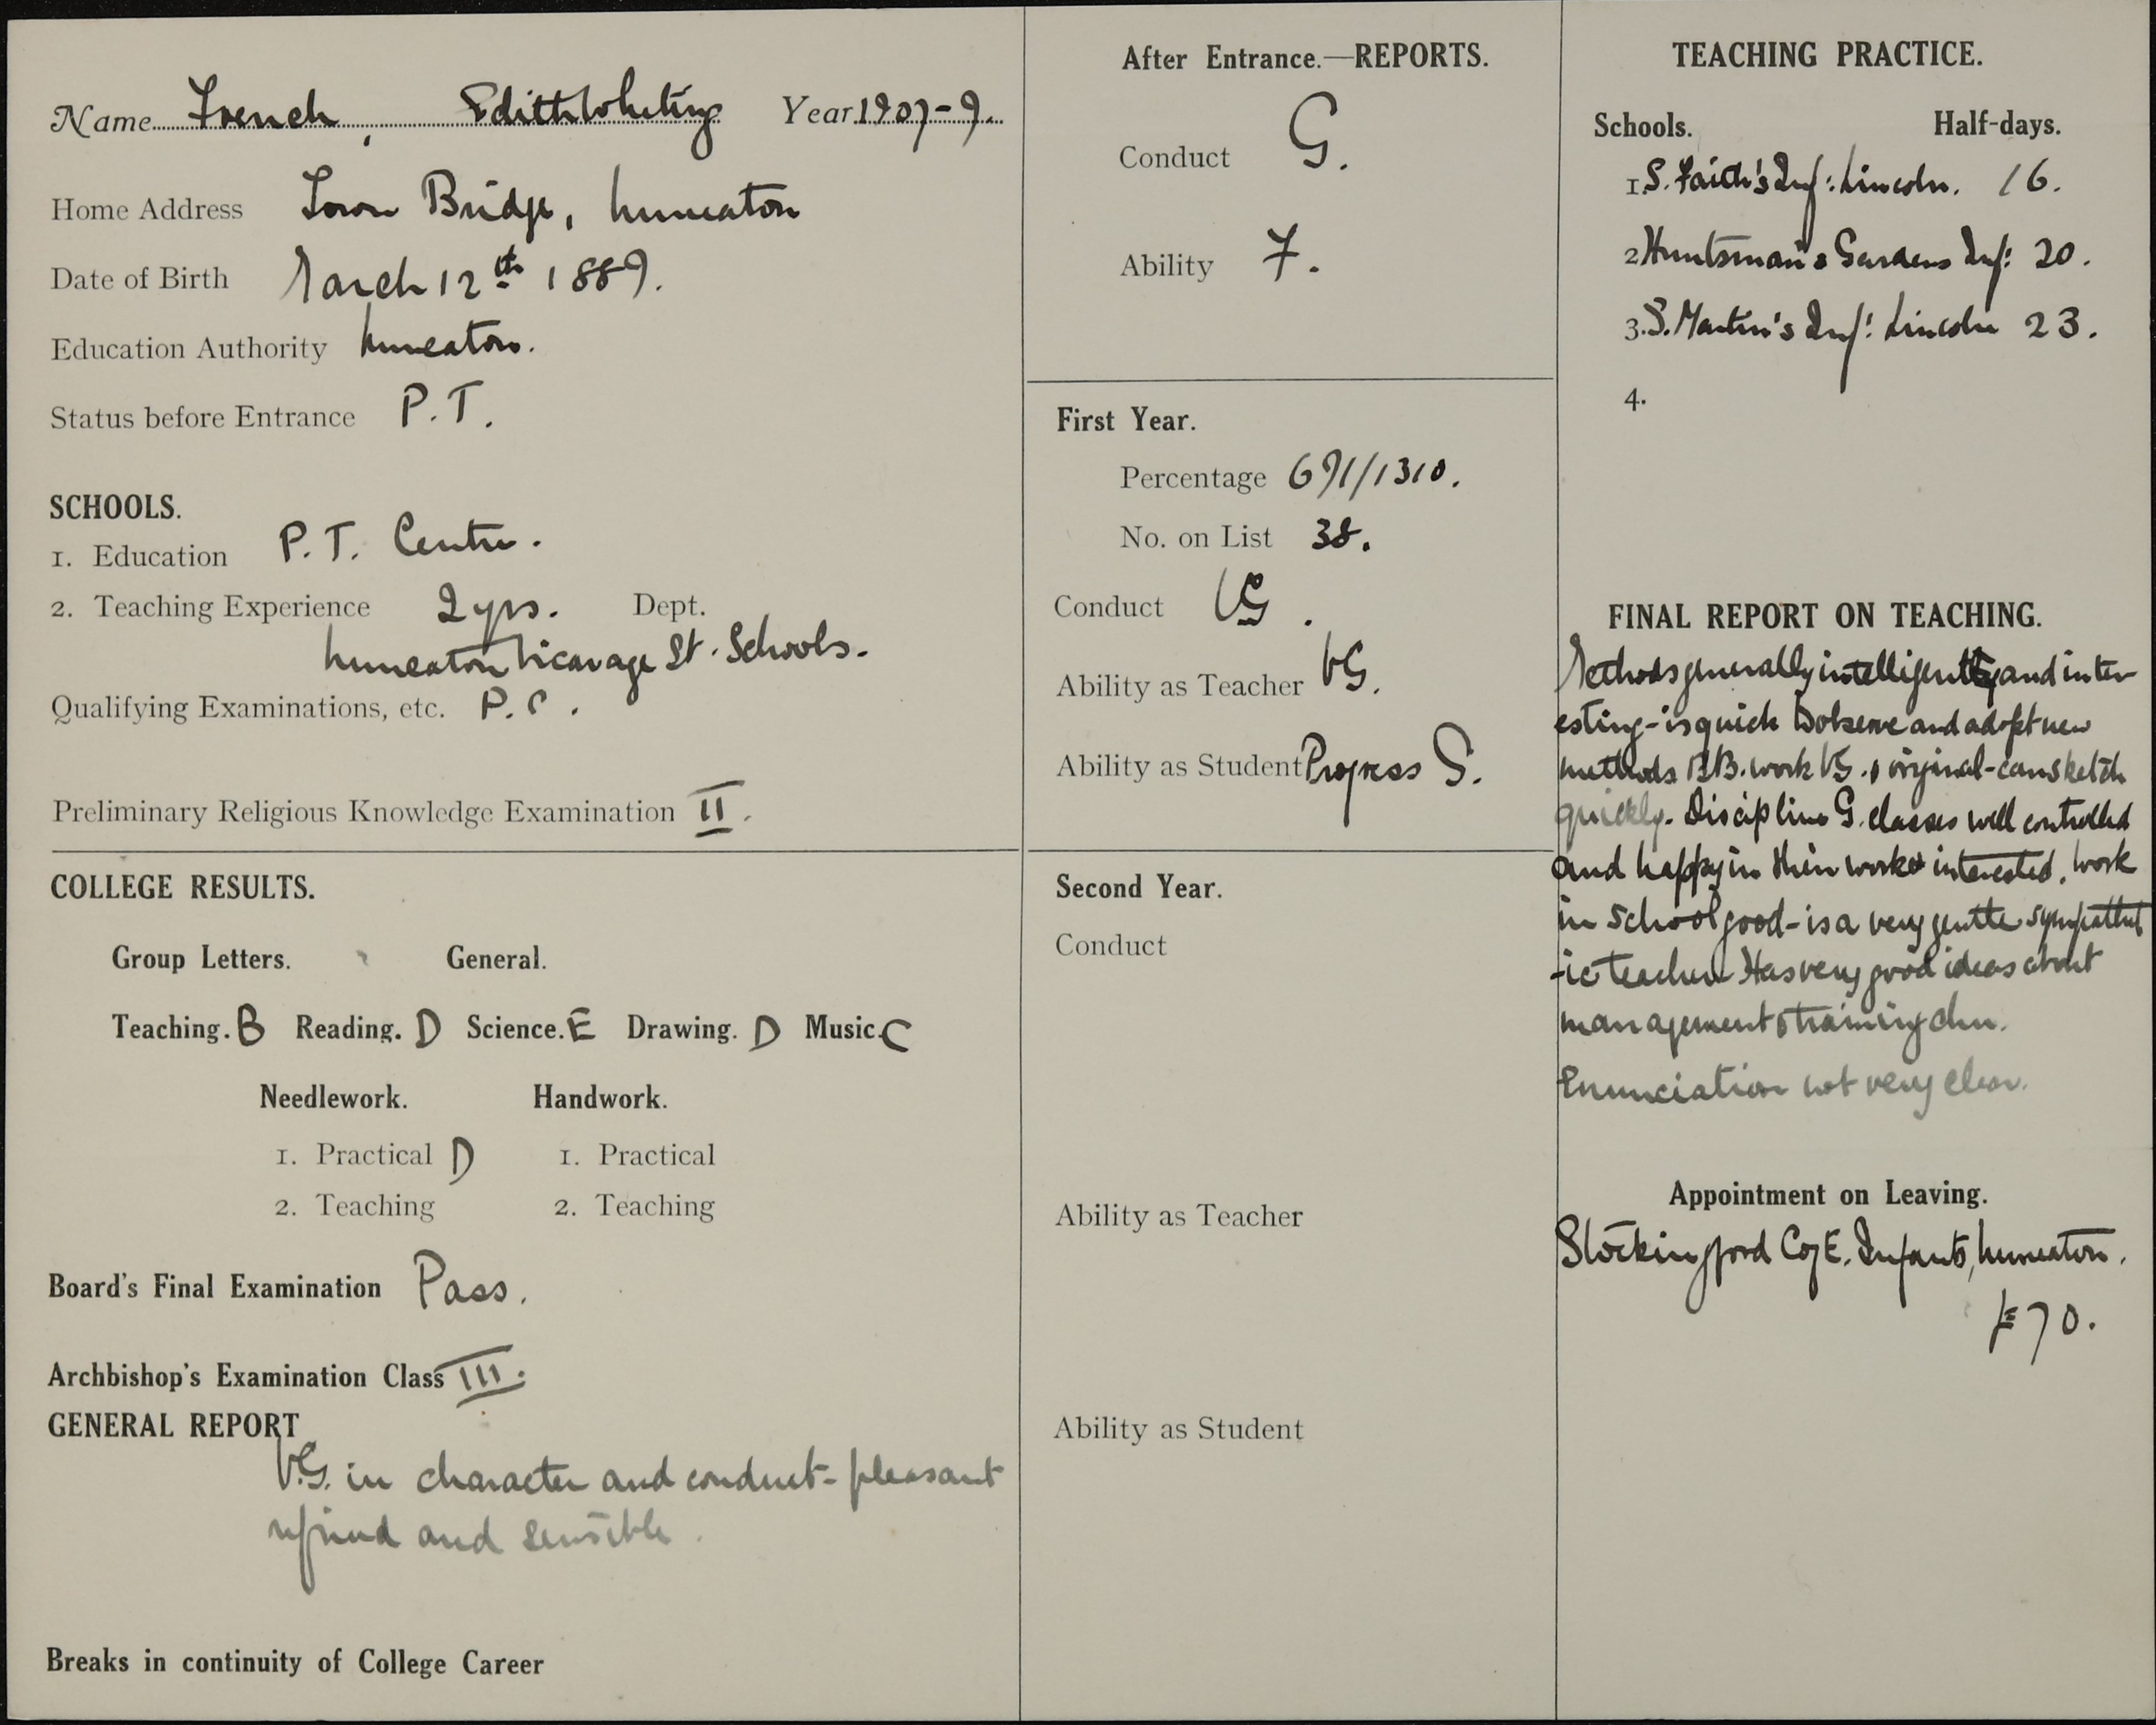 Name French, Edith Whiting Year 1907-9.
Home Address Town Bridge, Nuneaton
Date of Birth March 12th 1889.
Education Authority Nuneaton.
Status before Entrance P.T.
SCHOOLS.
1. Education P.T. Centre.
2. Teaching Experience 2 yrs. Dept.
Nuneaton Vicarage St. Schools.
Qualifying Examinations, etc. P.C.
Preliminary Religious Knowledge Examination II.
COLLEGE RESULTS.
Group Letters. General.
Teaching. B Reading. D Science. E Drawing. D Music. C
Needlework. Handwork.
1. Practical D 1. Practical
2. Teaching 2. Teaching
Board's Final Examination Pass.
Archbishop's Examination Class III.
GENERAL REPORT
V.G. in character and conduct - pleasant
refined and sensible.
Breaks in continuity of College Career
After Entrance.—REPORTS.
Conduct G.
Ability F.
First Year.
Percentage 691/1310.
No. on List 38.
Conduct VG.
Ability as Teacher VG.
Ability as Student Progress G.
Second Year.
Conduct
Ability as Teacher
Ability as Student
TEACHING PRACTICE.
Schools. Half-days.
1. S. Faith's Inf: Lincoln. 16.
2 Huntsman's Gardens Inf: 20.
3. S. Martin's Inf: Lincoln 23.
4.
FINAL REPORT ON TEACHING.
Methods generally intelligent and inter-
esting - is quick to observe and adopt new
methods BB. work VG. & original - can sketch
quickly. Discipline G. classes well controlled
and happy in their work & interested. Work
in School good - is a very gentle sympathet
-ic teacher Has very good ideas about
management & training chn.
Enunciation not very clear.
Appointment on Leaving.
Stockingford C of E. Infants, Nuneaton.
£70.